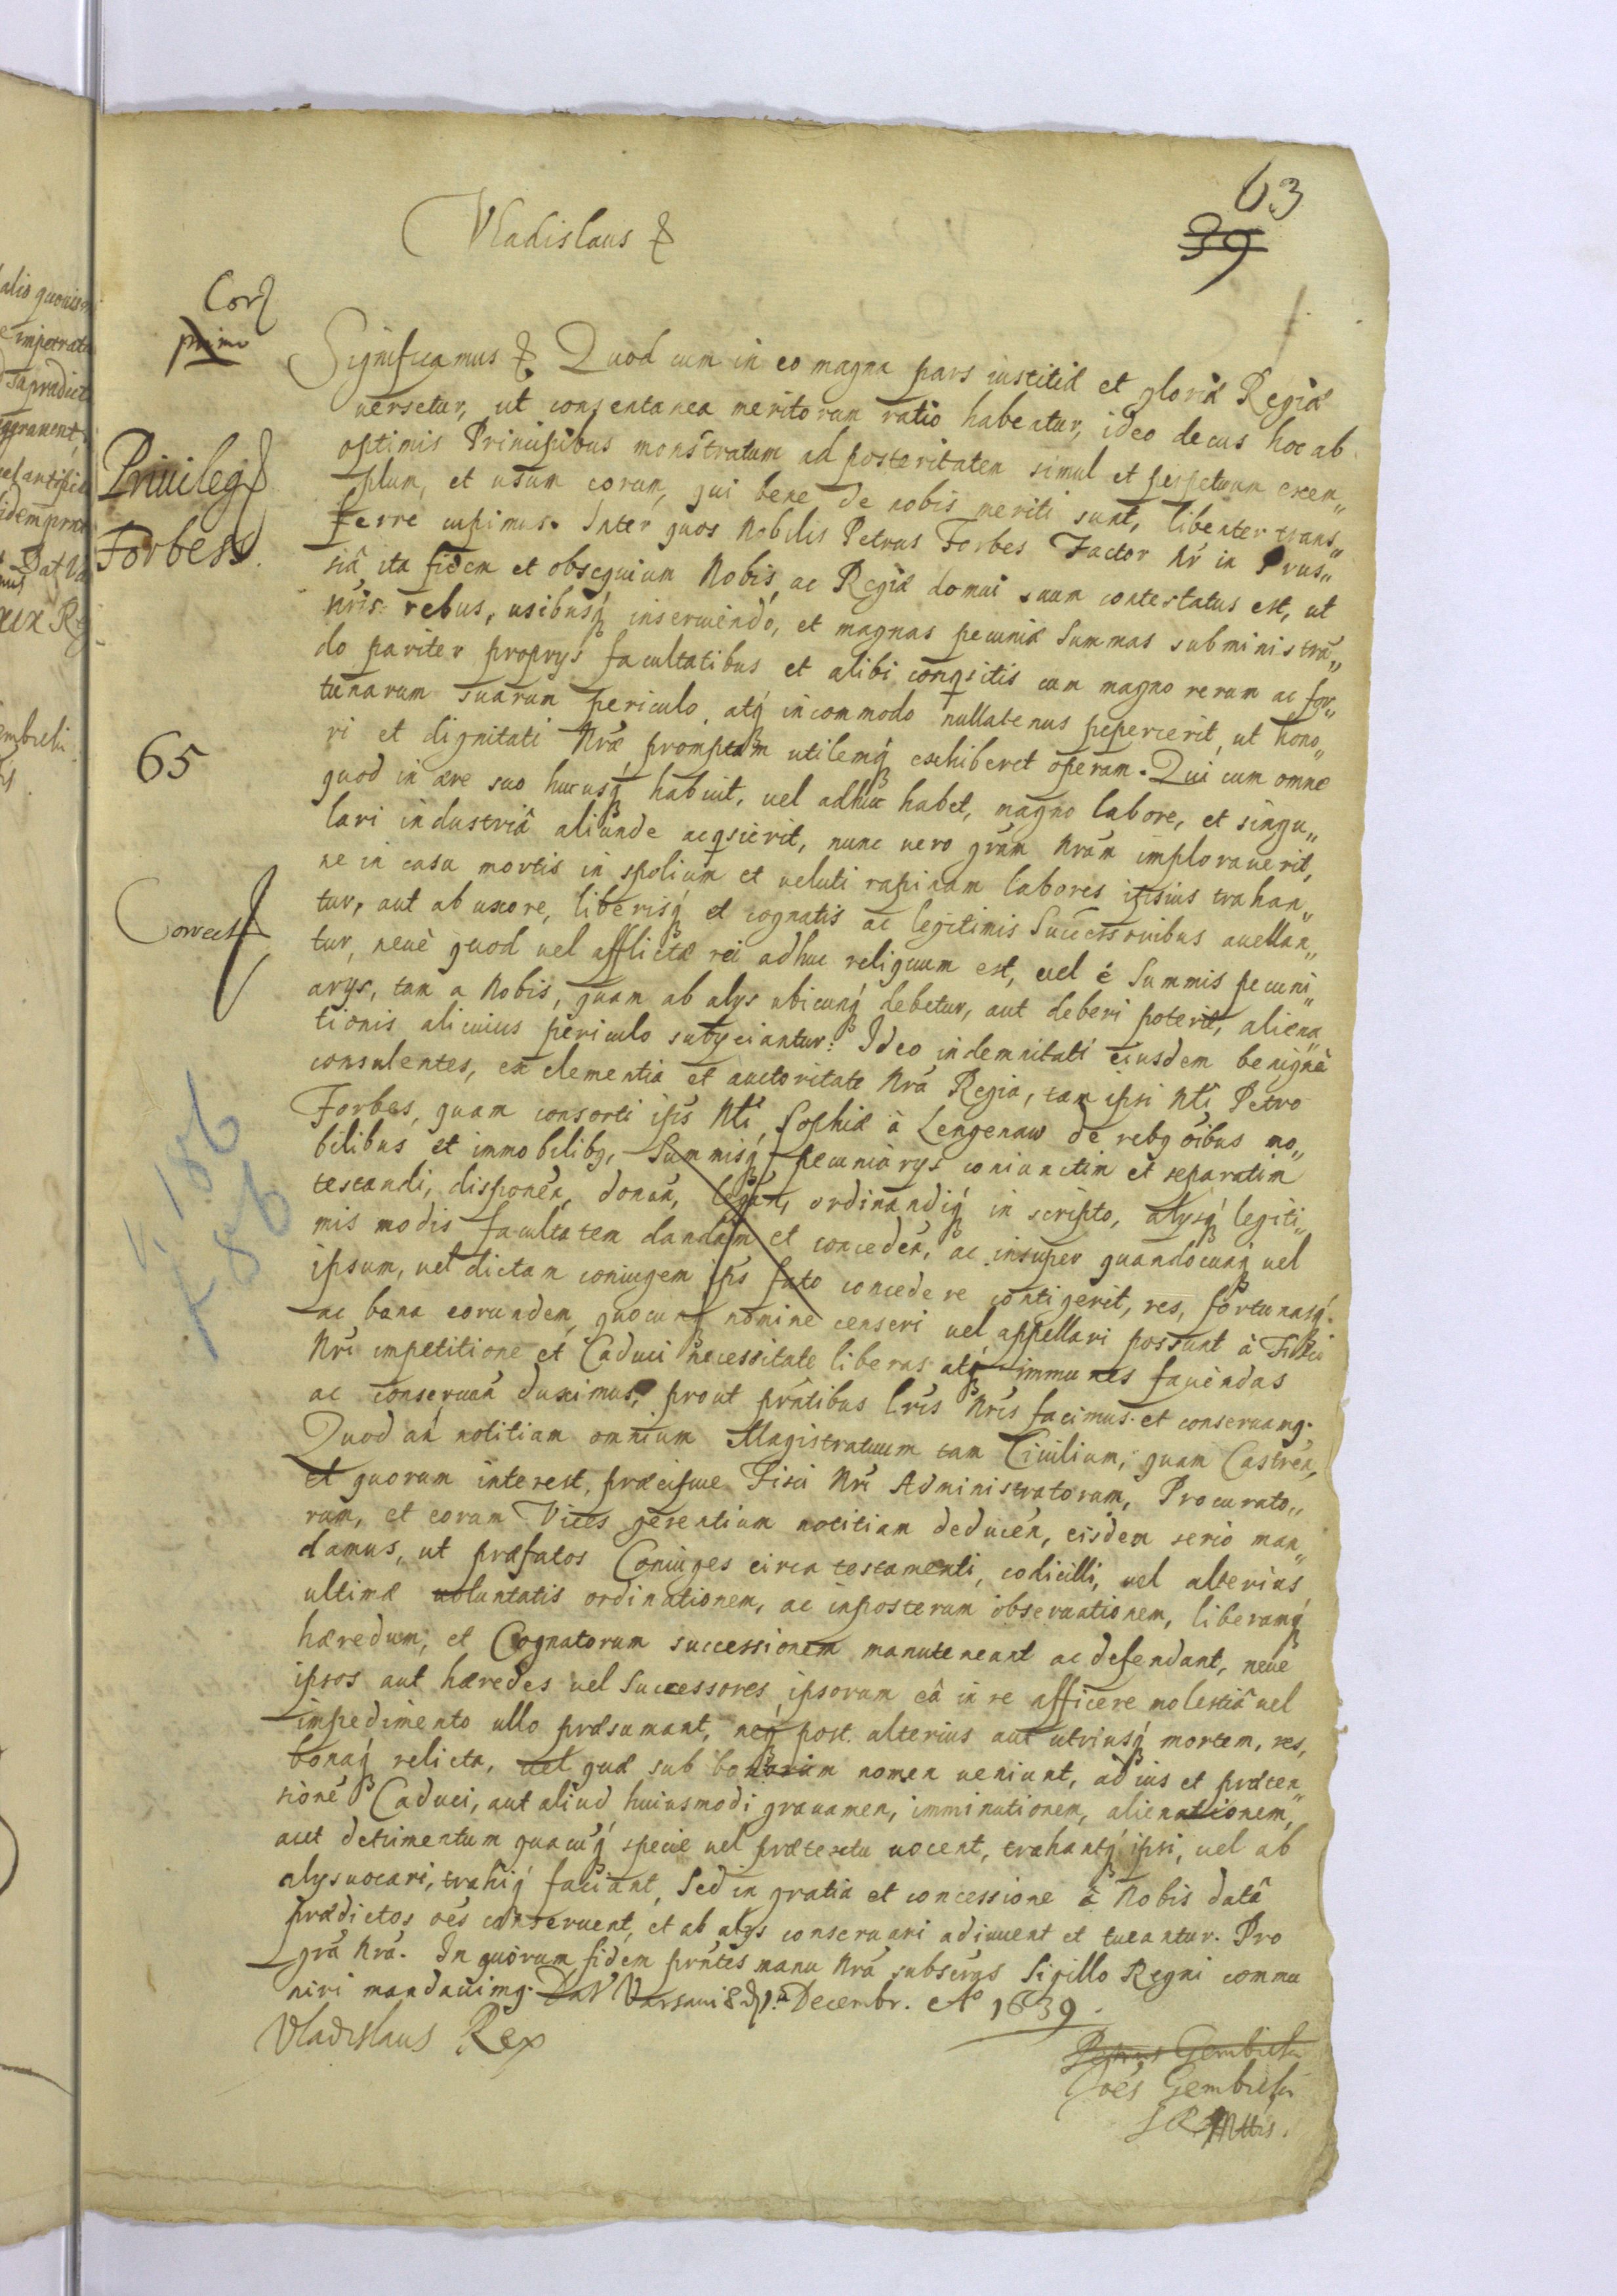 63
39
Vladislaus &
Corr
primo
Significamus & Quod cum in eo magna pars iustitiæ et gloriæ Regiæ
uersetur, ut consentanea meritorum ratio habeatur, ideo decus hoc ab
optimis Principibus monstratum ad posteritatem simul et perpetuum exem„
plum, et usum eorum, qui bene de nobis meriti sunt, libenter trans„
ferre cupimus. Inter quos Nobilis Petrus Forbes Factor Nr̃ in Prus„
siâ ita fidem et obsequium Nobis, ac Regiæ domui suum contestatus est, ut
Nr̃is rebus, usibusq́ inseruiendo, et magnas pecuniæ summas subministrã„
do pariter proprys facultatibus et alibi conqsitis cum magno rerum ac for„
tunarum suarum periculo, atq́ incommodo nullatenus pepercerit, ut hono„
ri et dignitati Nr̃æ promptam utilemq́ exhiberet operam. Qui cum omne
quod in ære suo hucusq́ habuit, uel adhuc habet, magno labore, et singu„
lari industriâ aliunde acqsierit, nunc uero grãm Nrãm implorauerit,
ne in casu mortis in spolium et ueluti rapinam labores ipsius trahan„
tur, aut ab uxore, liberisq́ et cognatis ac legitimis Successoribus auellan„
tur, neuè quod uel afflictæ rei adhuc reliquum est, uel é Summis pecuni„
arys, tam a Nobis, quam ab alys ubicunq́ debetur, aut deberi poterit, aliena„
tionis alicuius periculo subyciantur: Ideo indemnitati eiusdem benignè
consulentes, ex clementia et auctoritate Nrã Regia, tam ipsi Nti Petro
Forbes, quam consorti ips̃ Nti Sophiæ à Lengenaw de rebq õibus mo„
bilibus et immobilibq, Summisq́ pecuniarys coniunctim et separatim
testandi, disponeñ, donañ, legañ, ordinandiq́ in scripto, alysq́ legiti„
mis modis facultatem dandam et concedeñ, ac insuper quandocunq́ uel
ipsum, uel dictam coniugem ips̃ fato concedere contigerit, res, fortunasq́
ac bona eorundem, quocunq́ nomine censeri uel appellari possunt à Fisci
Nr̃i impetitione et Caduci necessitate liberas atq́ immunes faciendas
ac conseruañ duximus, prout prñtibus Lris̃ Nris̃ facimus et conseruamq.
Quod ad notitiam omnium Magistratuum tam Ciuilium, quam Castreñ,
et quorum interest, præcipue Fisci Nr̃i Administratorum, Procurato„
rum, et eorum Vices gerentium notitiam deduceñ, eisdem serio man„
damus, ut præfatos Coniuges circa testamenti, codicilli, uel alterius
ultimæ uoluntatis ordinationem, ac inposterum obseruationem, liberamq́
hæredum, et Cognatorum successionem manuteneant ac defendant, neue
ipsos aut hæredes uel Successores ipsorum eâ in re afficere molestiâ uel
impedimento ullo præsumant, neq́ post alterius aut utriusq́ mortem, res,
bonaq́ relicta, uel quæ sub bonorum nomen ueniunt, ad ius et præten„
sionẽ Caduci, aut aliud huiusmodi grauamen, imminutionem, alienationem,
aut detrimentum quacũq́ specie uel prætextu uocent, trahantq́ ipsi, uel ab
alys uocari, trahiq́ faciant, Sed in gratia et concessione à Nobis datâ
prædictos oẽs conseruent, et ab alys conseruari adiuuent et tueantur. Pro
grã Nrã. In quorum fidem prñtes manu Nrã subscrips Sigillo Regni commu
niri mandauimq. Dat Varsauiæ Decembr. Aº 1639.
Vladislaus Rex
Petrus Gembicki
Joẽs Gembicki
Priuileg
Forbess.
65
Correct
186
86